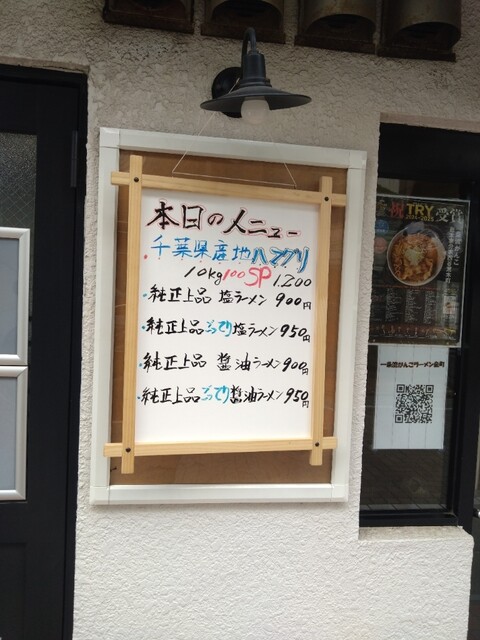 本日のメニュー
・千葉県産地ハマグリ
10kg 100SP 1.200
・純正上品 塩ラーメン 900円
・純正上品こってり塩ラーメン 950円
・純正上品 醤油ラーメン 900円
・純正上品こってり醤油ラーメン 950円
祝TRY受賞
一条流がんこラーメン